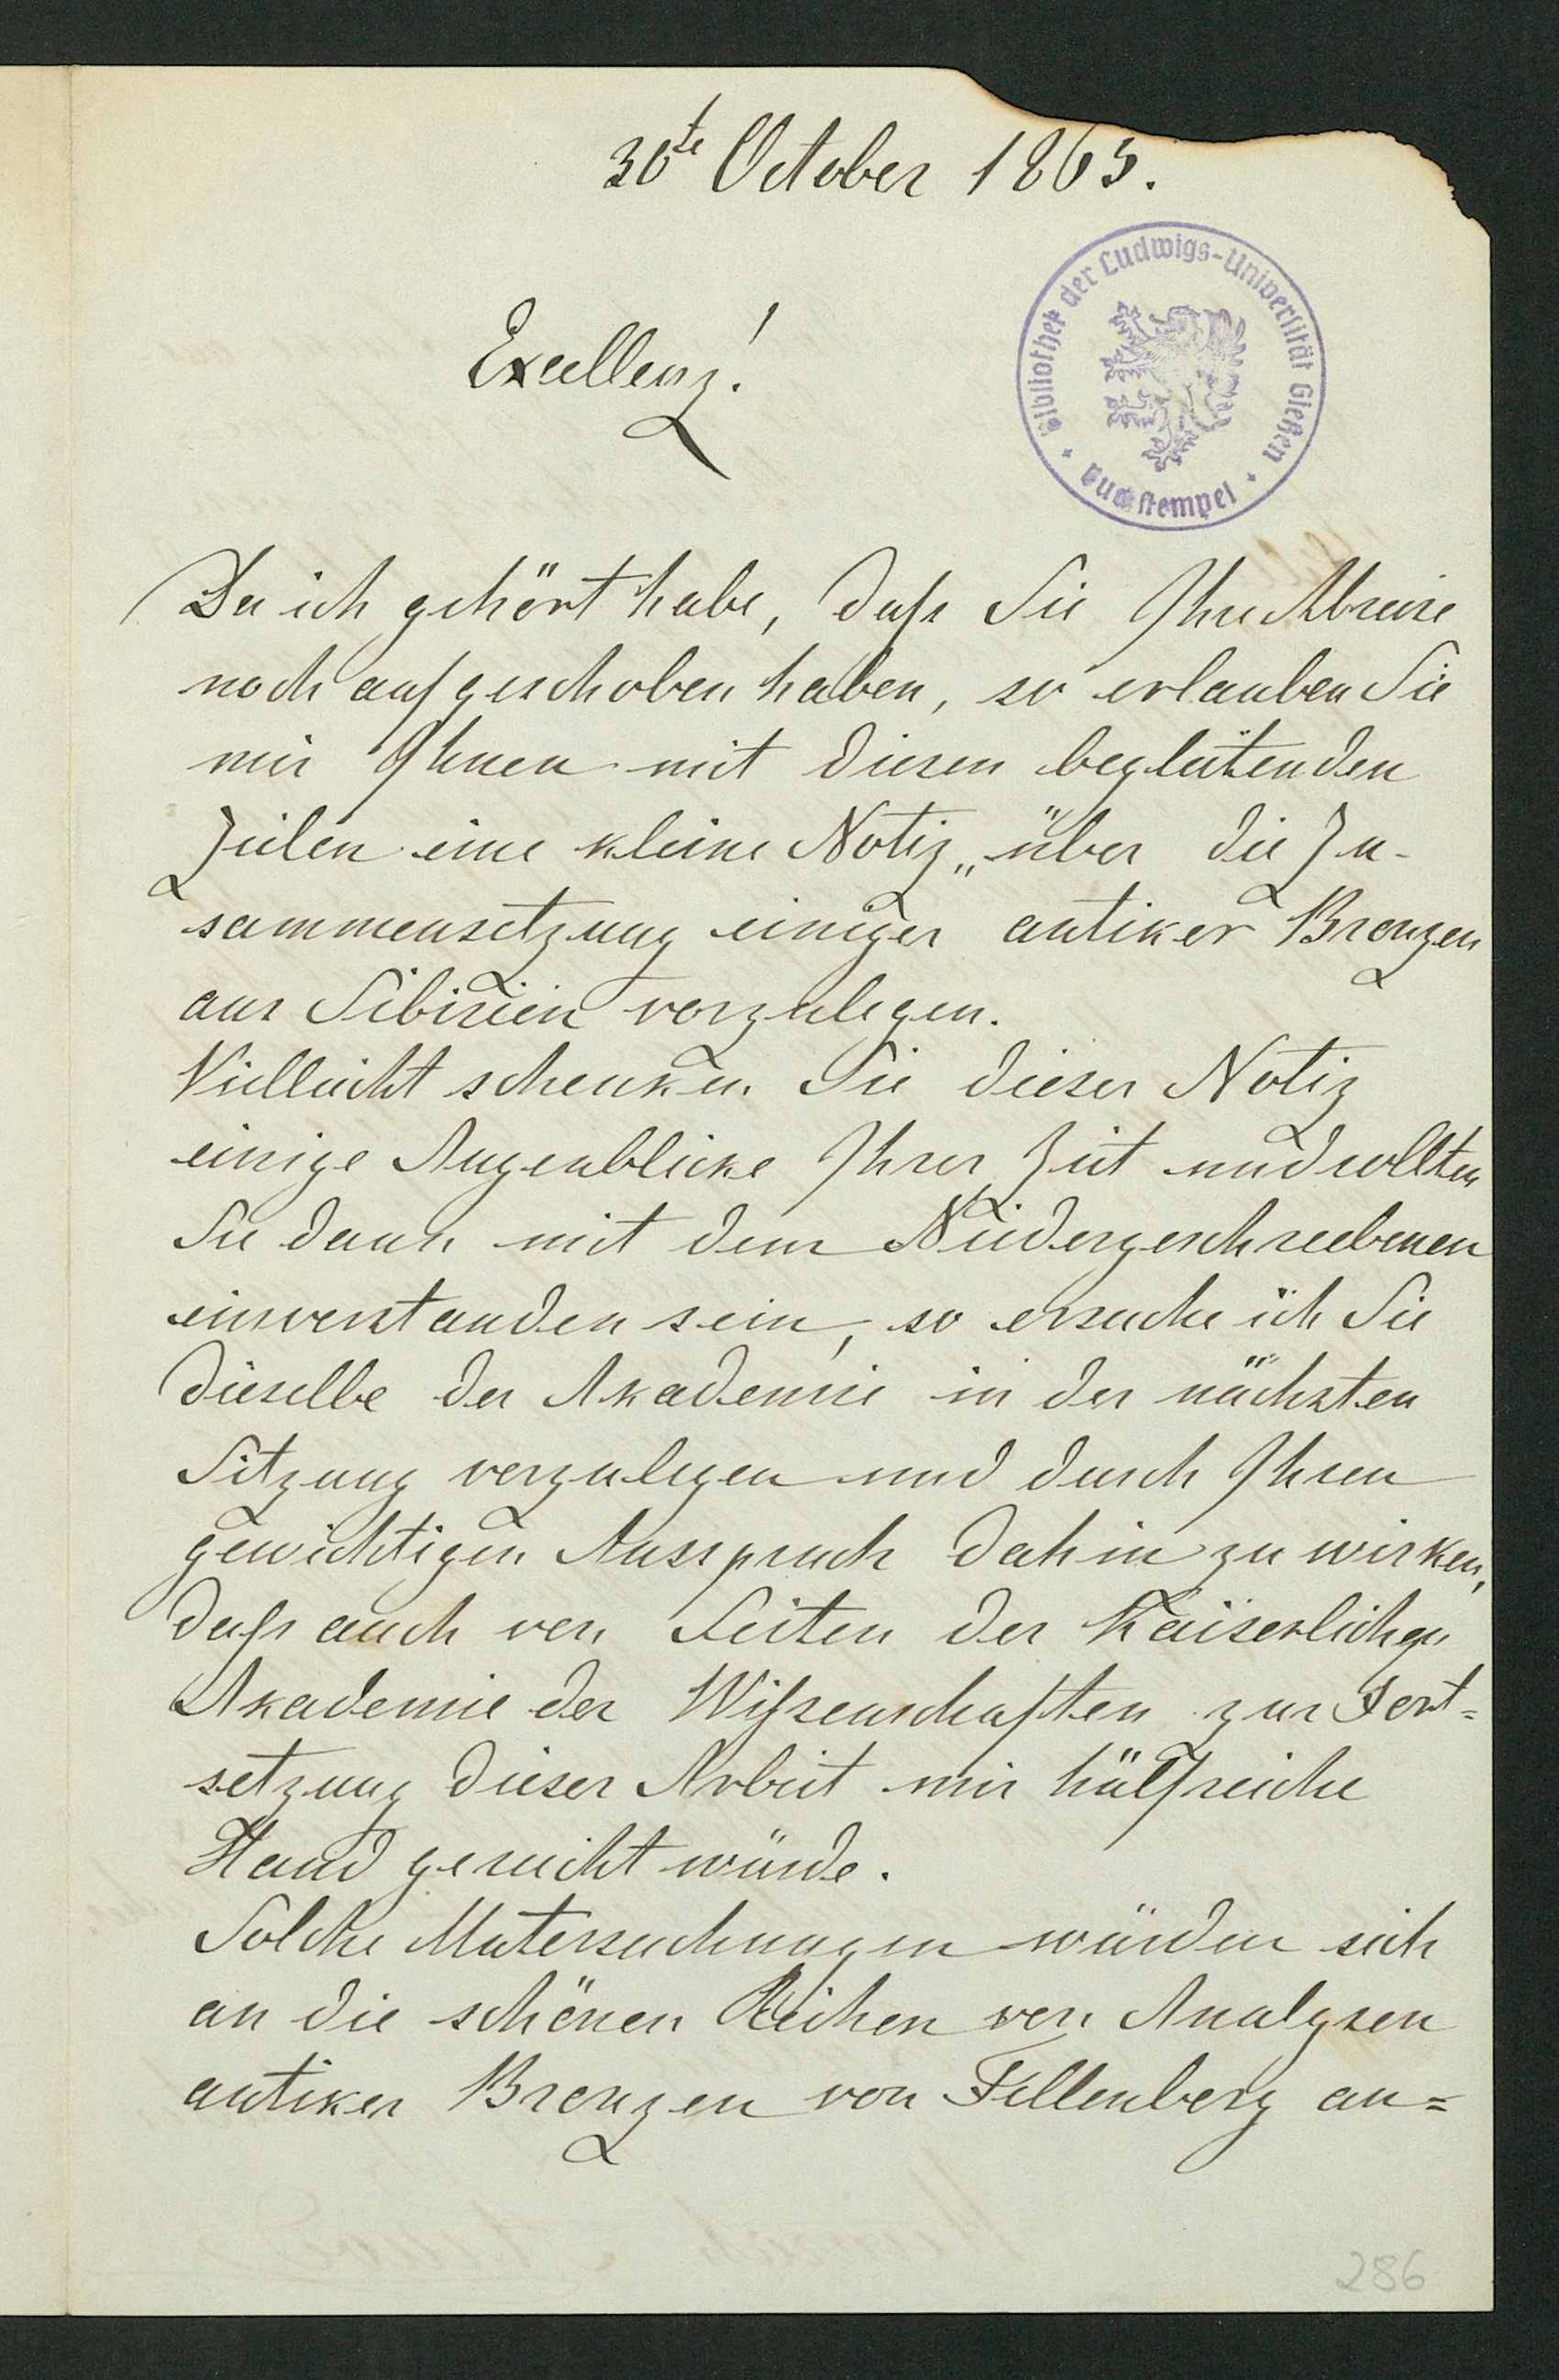 30te October 1865.
Bibliothek der Ludwigs-Universität Gießen
Buchstempel
Excellenz!
Da ich gehört habe, daß Sie Ihre Abreise
noch aufgeschoben haben, so erlauben Sie
mir Ihnen mit diesen begleitenden
Zeilen eine kleine Notiz „über die Zu-
sammensetzung einiger antiker Bronzen
aus Sibirien vorzulegen.
Vielleicht schenken Sie dieser Notiz
einige Augenblicke Ihrer Zeit und sollten
Sie dann mit dem Niedergeschriebenen
einverstanden sein, so ersuche ich Sie
dieselbe der Akademie in der nächsten
Sitzung vorzulegen und durch Ihren
gewichtigen Ausspruch dahin zu wirken,
daß auch von Seiten der Kaiserlichen
Akademie der Wißenschaften zur Fort=
setzung dieser Arbeit mir hülfreiche
Hand gereicht würde.
Solche Untersuchungen würden sich
an die schönen Reihen von Analysen
antiker Bronzen von Fellenberg an=
286